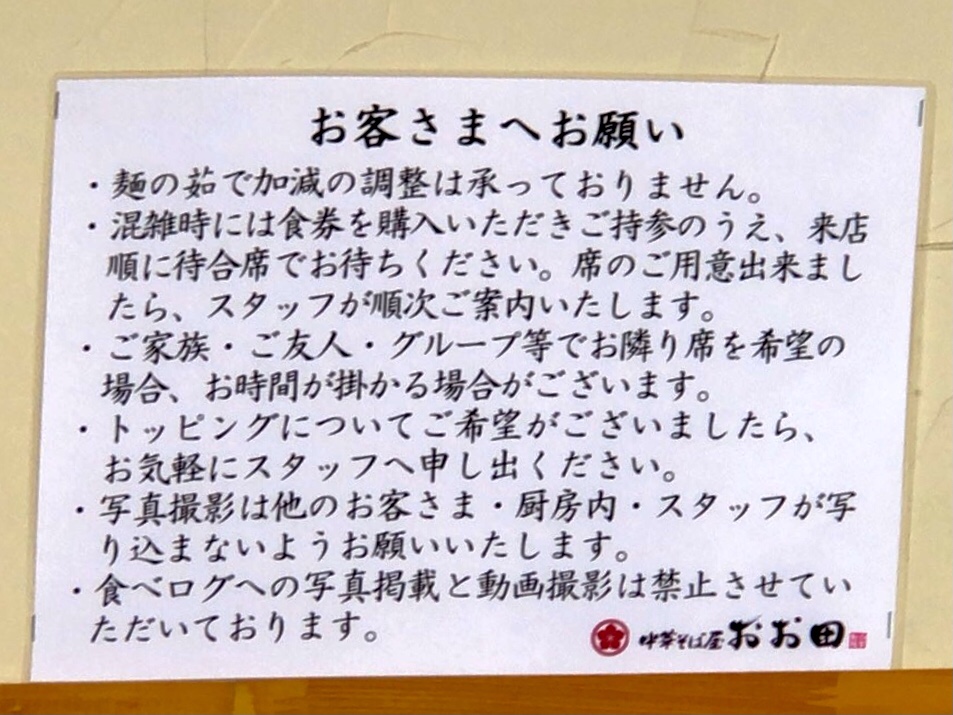 お客さまへお願い
・麺の茹で加減の調整は承っておりません。
・混雑時には食券を購入いただきご持参のうえ、来店
順に待合席でお待ちください。席のご用意出来まし
たら、スタッフが順次ご案内いたします。
・ご家族・ご友人・グループ等でお隣り席を希望の
場合、お時間が掛かる場合がございます。
・トッピングについてご希望がございましたら、
お気軽にスタッフへ申し出ください。
・写真撮影は他のお客さま・厨房内・スタッフが写
り込まないようお願いいたします。
・食べログへの写真掲載と動画撮影は禁止させてい
ただいております。
中華そば屋 おお田